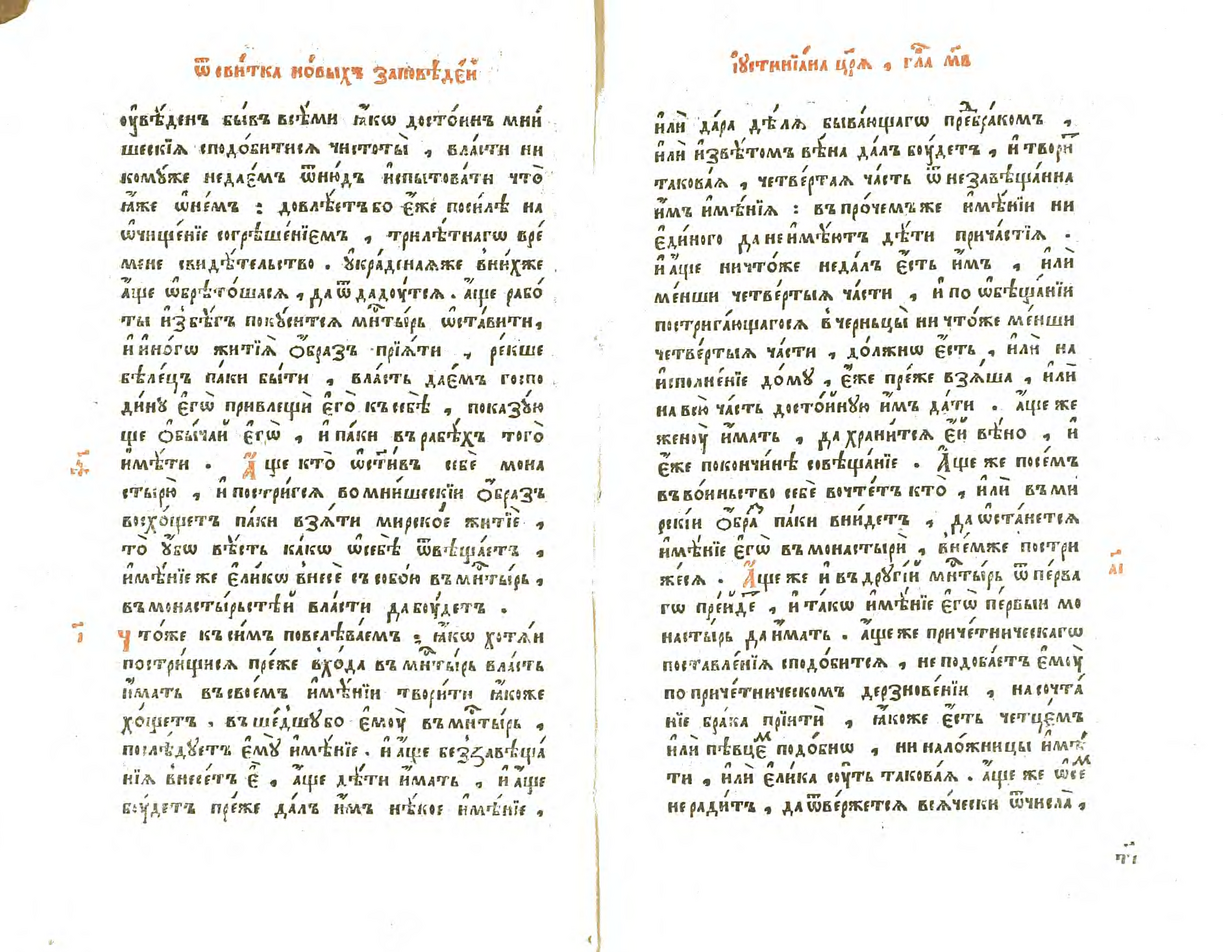 ѿ сви́тка но́выхъ за́повѣде́й
оу҆вѣ́денъ бы́въ всѣ́ми ꙗ҆́кѡ досто́инъ мни́
шескїѧ сподо́битисѧ чистоты̀ , вла́сти ни
кому́же недае́мъ ѿню́дъ и҆спытова́ти что̀
ꙗ҆́же ѡ҆не́мъ : довлѣ́етъбо є҆́же поси́лѣ на
ѡ҆чище́нїе согрѣше́нїемъ , трилѣ́тнагѡ вре́
мене свидѣ́тельство . ᲂу҆кра́денаѧже вни́хже
а҆́ще ѡ҆брѣто́шасѧ , да ѿ даду́тсѧ . а҆́ще рабо́
ты и҆збѣ́гъ поку́ситсѧ мн҃ты́рь ѡ҆ста́вити,
и҆ и҆но́гѡ житїѧ̀ ѻ҆́бразъ прїѧ́ти , ре́кше
бѣле́цъ па́ки бы́ти , вла́сть дае́мъ госпо
ди́ну є҆гѡ̀ привлещѝ є҆го̀ къ себѣ̀ , показу́ю
ще ѻ҆бы́чай є҆гѡ̀ , и҆ па́ки въ рабѣ́хъ того̀
и҆мѣ́ти . А҆́ ще кто̀ ѡ҆ста́вивъ себѐ мона
стырю̀ , и҆ постри́гсѧ во мни́шескїи ѻ҆́бразъ
восхо́щетъ па́ки взѧ́ти мирско́е житїѐ ,
то̀ у҆́бѡ вѣ́сть ка́кѡ ѡ҆себѣ̀ ѿвѣща́етъ ,
и҆мѣ́нїе же є҆ли́кѡ внесѐ съ собо́ю въ мн҃ты́рь ,
въ монасты́рьстѣй вла́сти да бу́детъ .
і҃
Ч то́же къ си́мъ повелѣва́емъ : ꙗ҆́кѡ хотѧ́и
постри́щисѧ пре́же вхо́да въ мн҃ты́рь вла́сть
и҆́мать въ свое́мъ и҆мѣ́нїи твори́ти ꙗ҆́коже
хо́щетъ . въ ше́дшу бо є҆моу̀ въ мн҃ты́рь ,
послѣ́дуетъ є҆му̀ и҆мѣ́нїе . и҆ а҆́ще без̾завѣща́
нїѧ внесе́тъ є҆̀ , а҆́ще дѣ́ти и҆́мать , и҆ а҆́ще
бу́детъ пре́же да́лъ и҆̀мъ нѣ́кое и҆мѣ́нїе ,
і҆устинїа́на цр҃ѧ̀ , гла҃ м҃в
и҆лѝ да́ра дѣ́лѧ быва́ющагѡ предбра́комъ ,
и҆лѝ и҆звѣ́томъ вѣ́на да́лъ бу́детъ , и҆ твори́т
такова́ѧ , четве́ртаѧ ча́сть ѿ незавѣща́нна
и҆̀мъ и҆мѣ́нїѧ : въ про́чемъже и҆мѣ́нїи ни
є҆ди́ного да не и҆мѣ́ютъ дѣ́ти прича́стїѧ .
и҆ а҆́ще ничто́же неда́лъ є҆́сть и҆̀мъ , и҆лѝ
ме́нши четве́ртыѧ ча́сти , и҆ по ѡ҆бѣща́нїи
пострига́ющагосѧ в черньцы̀ ни что́же ме́нши
четве́ртыѧ ча́сти , до́лжнѡ є҆́сть , и҆лѝ на
и҆сполне́нїе до́му , є҆́же пре́же взѧ́ша , и҆лѝ
на всю̀ ча́сть досто́йную и҆̀мъ да́ти . а҆́ще же
женоу̀ и҆́мать , да храни́тсѧ є҆́й вѣ́но , и҆
є҆́же по кончи́нѣ совѣща́нїе . А҆́ще же посе́мъ
въ во́иньство себѐ вочте́тъ кто̀ , и҆лѝ въ ми
рскїи ѻ҆́браз па́ки вни́детъ , да ѡ҆ста́нетсѧ
и҆мѣ́нїе є҆гѡ̀ въ монастырѝ , в не́мже постри
же́сѧ . А҆́ще же и҆ въ другі́й мн҃ты́рь ѿ пе́рва
а҃і
гѡ пре́йде , и҆ та́кѡ и҆мѣ́нїе є҆гѡ̀ пе́рвыи мо
насты́рь да и҆́мать . а҆́ще же приче́тническагѡ
поставле́нїѧ сподо́битсѧ , не подоба́етъ є҆моу̀
по приче́тническомъ дерзнове́нїи , на сочта́
нїе бра́ка прїитѝ , ꙗ҆́коже є҆́сть четце́мъ
и҆лѝ пѣвце́м подо́бнѡ , ни нало́жницы и҆мѣ́
ти , и҆лѝ є҆ли́ка су́ть такова́ѧ . а҆́ще же ѡ҆се́м
не ради́тъ , да ѿве́ржетсѧ всѧ́чески ѿ числа̀ ,